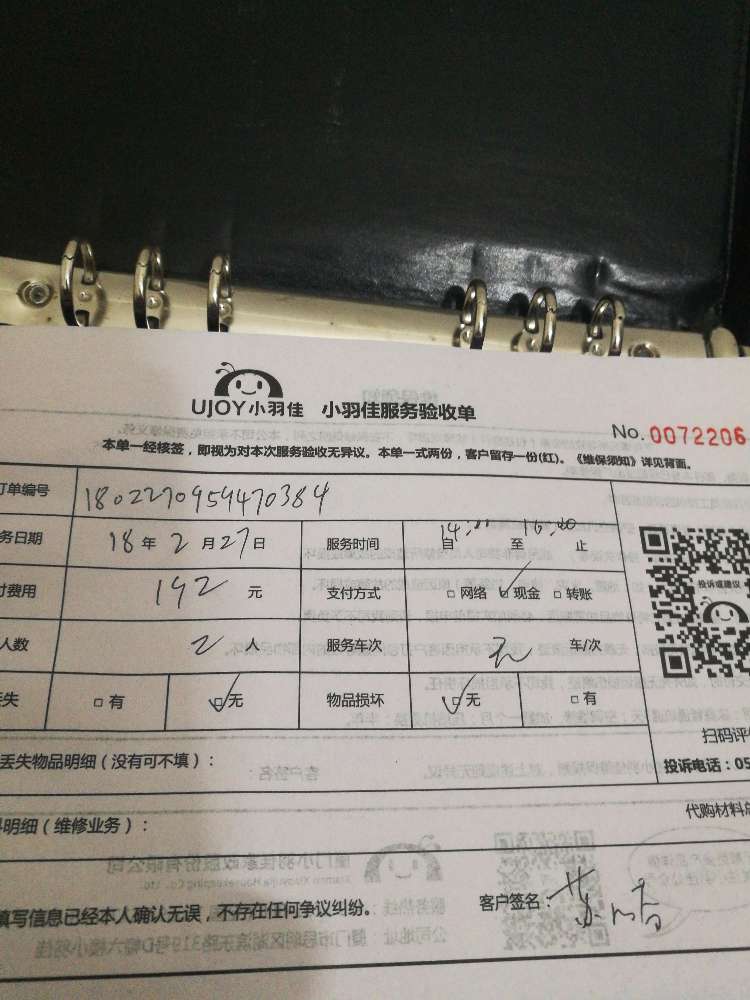 UJOY小羽佳 小羽佳服务验收单
No.0072206
本单一经核签，即视为对本次服务验收无异议。本单一式两份，客户留存一份(红)。《维保须知》详见背面。
订单编号 1802270959470384
务日期 18年2月27日 服务时间 自14: 至16:40止
付费用 192元 支付方式 □网络 □现金 □转账
人数 2人 服务车次 无 车/次
丢失 □有 □无 物品损坏 □无 □有
投诉或建议
扫码评
丢失物品明细（没有可不填）：
投诉电话：05
料明细（维修业务）：
代购材料总
填写信息已经本人确认无误，不存在任何争议纠纷。 客户签名：